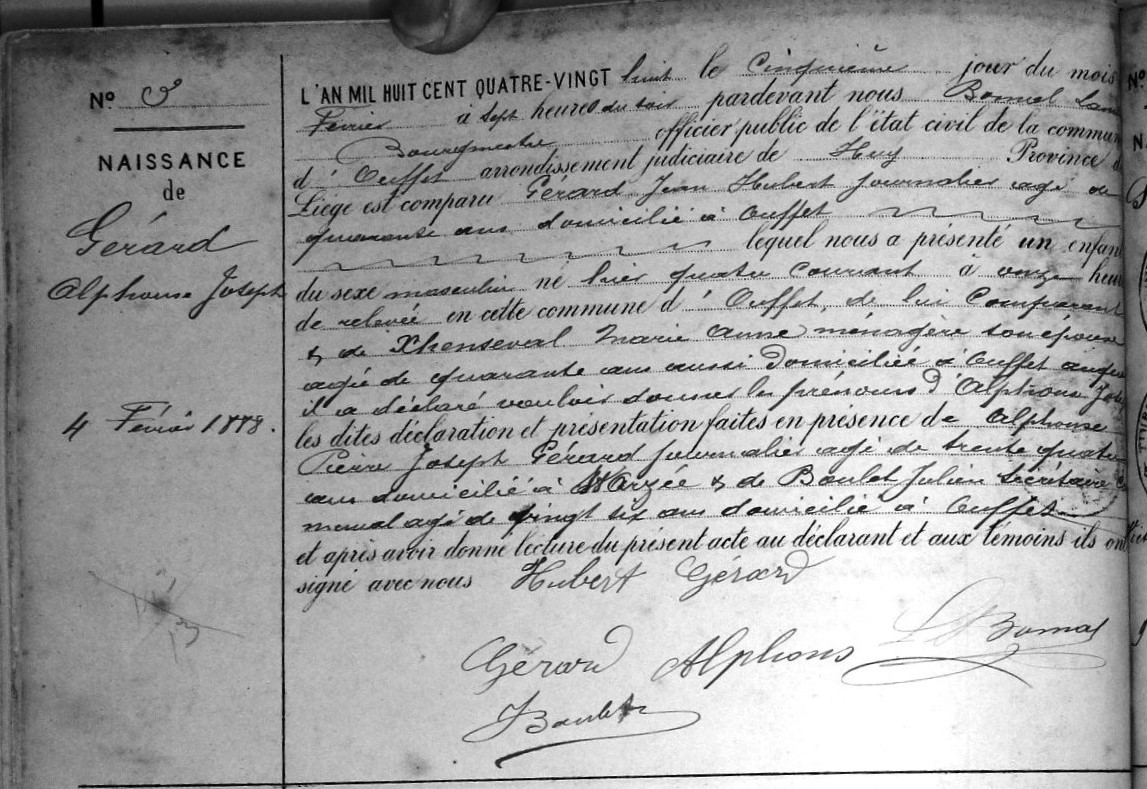 N° 3
NAISSANCE
de
Gérard
Alphonse Joseph
4 Février 1888.
L'AN MIL HUIT CENT QUATRE-VINGT huit le cinquième jour du mois
Février à sept heures du soir pardevant nous Bomal
Bourgmestre officier public de l'état civil de la commun
d'Ouffet arrondissement judiciaire de Huy Province d
Liège est comparu Gérard Jean Hubert journalier agé de
quarante ans domicilié à Ouffet
lequel nous a présenté un enfan
du sexe masculin né hier quatre courant à onze heur
de relevée en cette commune d'Ouffet, de lui Comparant
& de Xhenseval Marie Anne ménagère son épouse
agée de quarante ans aussi domiciliée à Ouffet auquel
il a déclaré vouloir donner les prénoms d'Alphonse Jose
les dites déclaration et présentation faites en présence de Alphonse
Pierre Joseph Gérard journalier agé de trente quatre
ans domicilié à Warzée & de Boulet Julien Secrétaire Co
munal agé de vingt six ans domicilié à Ouffet
et après avoir donné lecture du présent acte au déclarant et aux témoins ils ont
signé avec nous Hubert Gérard
Gérard Alphons Bomal
J Boulet